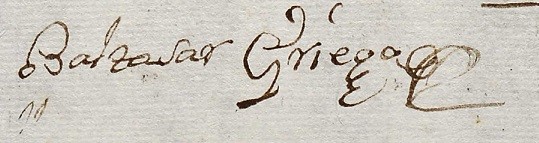 Baltasar Griego